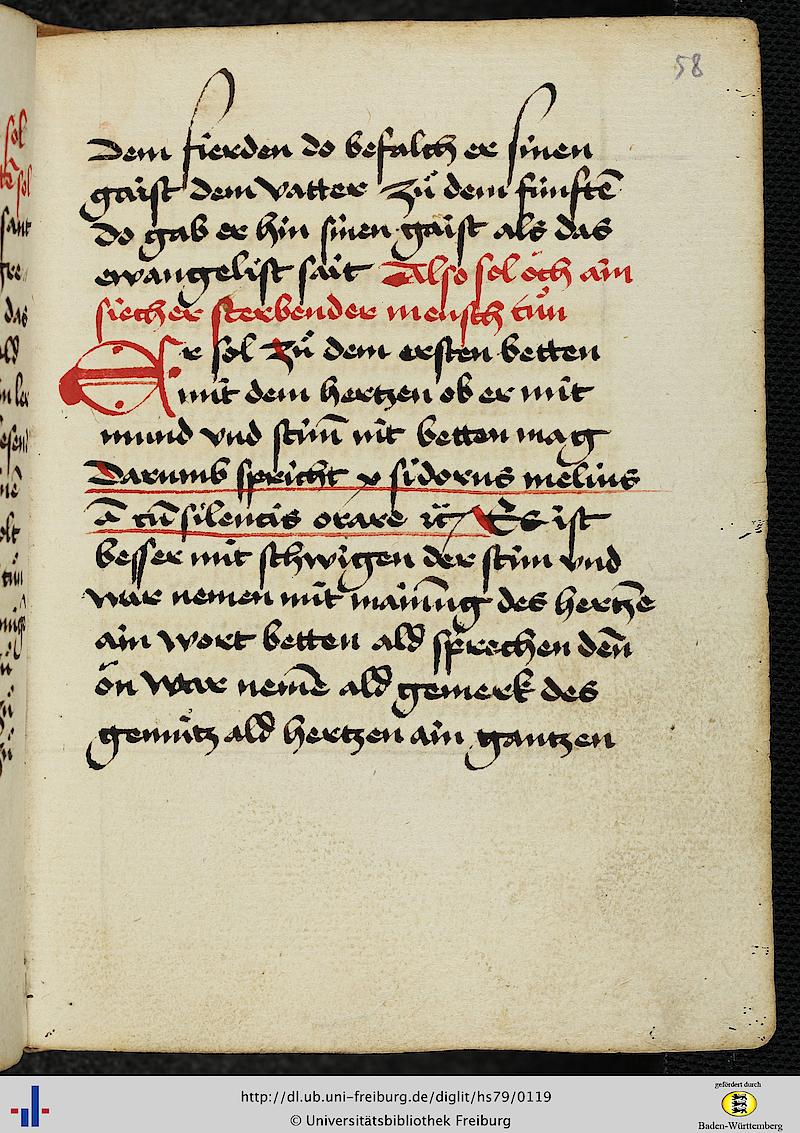 58
Dem fierden do befalch er sinen
gaist dem vatter Zuͦ dem fúnftē
do gab er hin sinen gaist als das
ewangelist sait Also sol oͤch ain
siecher sterbender mensch tuͦn
Er sol Zuͦ dem ersten betten
mit dem hertzen ob er mit
mund vnd stim̄ nit betten mag
Darumb spricht ysidorus melius
ē cū silencis orare ꝛc̄ Es ist
besser mit schwigen der stim vnd
war nemen mit mainūg des hertzē
ain wort betten ald sprechen den̄
ön war nemē ald gemerk des
gemütz ald hertzen ain gantzen
http://dl.ub.uni-freiburg.de/diglit/hs79/0119
© Universitätsbibliothek Freiburg
gefördert durch
Baden-Württemberg